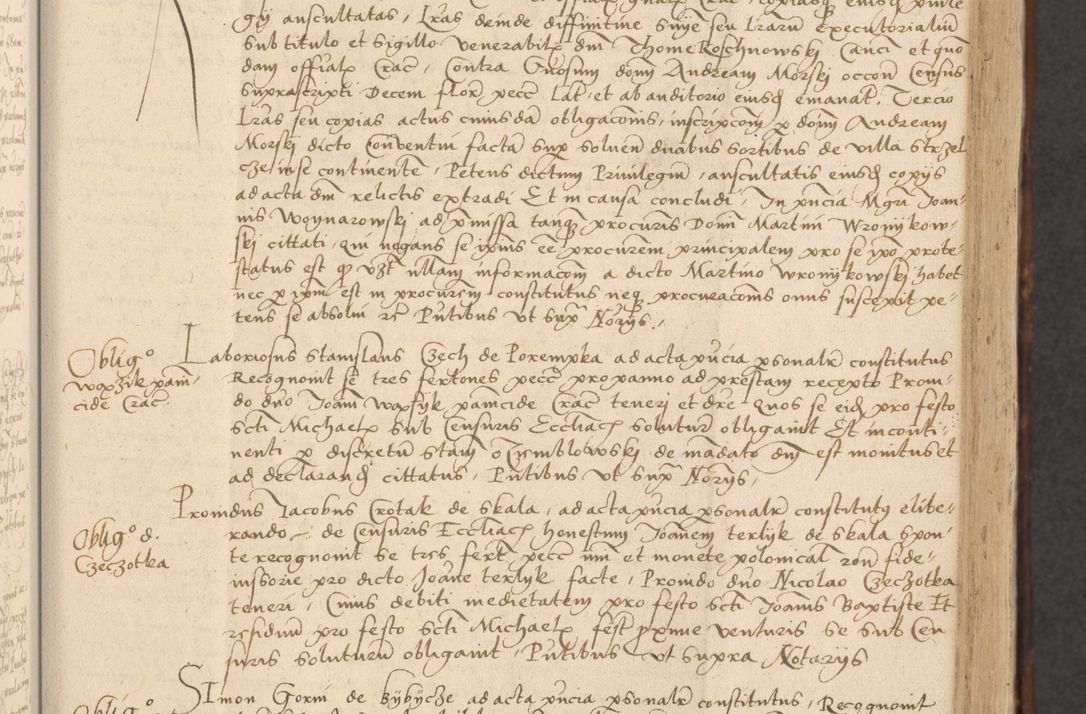 gij auscultatas, Lras deinde diffinitive snie seu Lraru executorialiu
sub titulo et sigillo venerabilis dni Thome Roschnowskj Canci et quo
dam officialis Crac, Contra Gnosum dominum Andream Morskj occone Census
suprascripti Decem flor pecc Lat, et ab auditorio eiusd emanat, Tercio
Lras seu copias actus cuiusdam obligacoms, inscripcom p dnm Andream
Morskj dicto Conventui factam sup soluen duabus sortibus de villa Strzel
cze, in se continente, Petens dictum Privilegium, auscultatis eiusd copijs
ad acta dni relictis extradi Et in causa concludi, In pncia Mgri Joan-
nis Woynarowskj ad pmissa tanq procuris Domini Martini Wronykow-
skj cittati, qui negans se ipius ee procurem principalem pro se ipo prote-
status est q vzt ullam informacom a dicto Martino Wronikowskj habet
nec p ipm est in procurem constitutus neq procuracoms onus suscepit pe-
tens se absolui rc Pntibus vt sup Norijs,
Oblig.º
wapzik pam-
cide Crac
Laboriosus Stanislaus Czech de Porempka ad acta pncia psonalr constitutus
Recognouit se tres fertones pecc pro panno ad prestam recepto Proui-
do dno Joanni Wapsyk panicide Crac tenerj et dre Quos se eid pro festo
Scti Michaelis sub Censuris Ecclias soluturu obligauit Et inconti-
nenti p discretum Stanis o Czemblowskj de mandato dni est monitus et
ad declarand cittatus, Pntibus vt sup Norijs,
Oblig.º d.
Czeczotka
Prouidus Jacobus Crotak de Skala, ad acta pncia psonalr constitutus elibe-
rando de Censuris Ecclias honestum Joannem terlyk de Skala spon-
te recognouit se tres fert pecc num et monete polonical ron fide-
iussorie pro dicto Joane terlyk facte, Prouido dno Nicolao Czeczotka
teneri, Cuius debiti medietatem pro festo Scti Joannis Baptiste Et
residuum pro festo Scti Michaelis fest pxime venturis se sub Cen
suris soluturu obligauit, Pntibus vt supra Notarijs
Oblig.º
Simon Gorni de bzybycze ad acta pncia psonalr constitutus, Recognouit